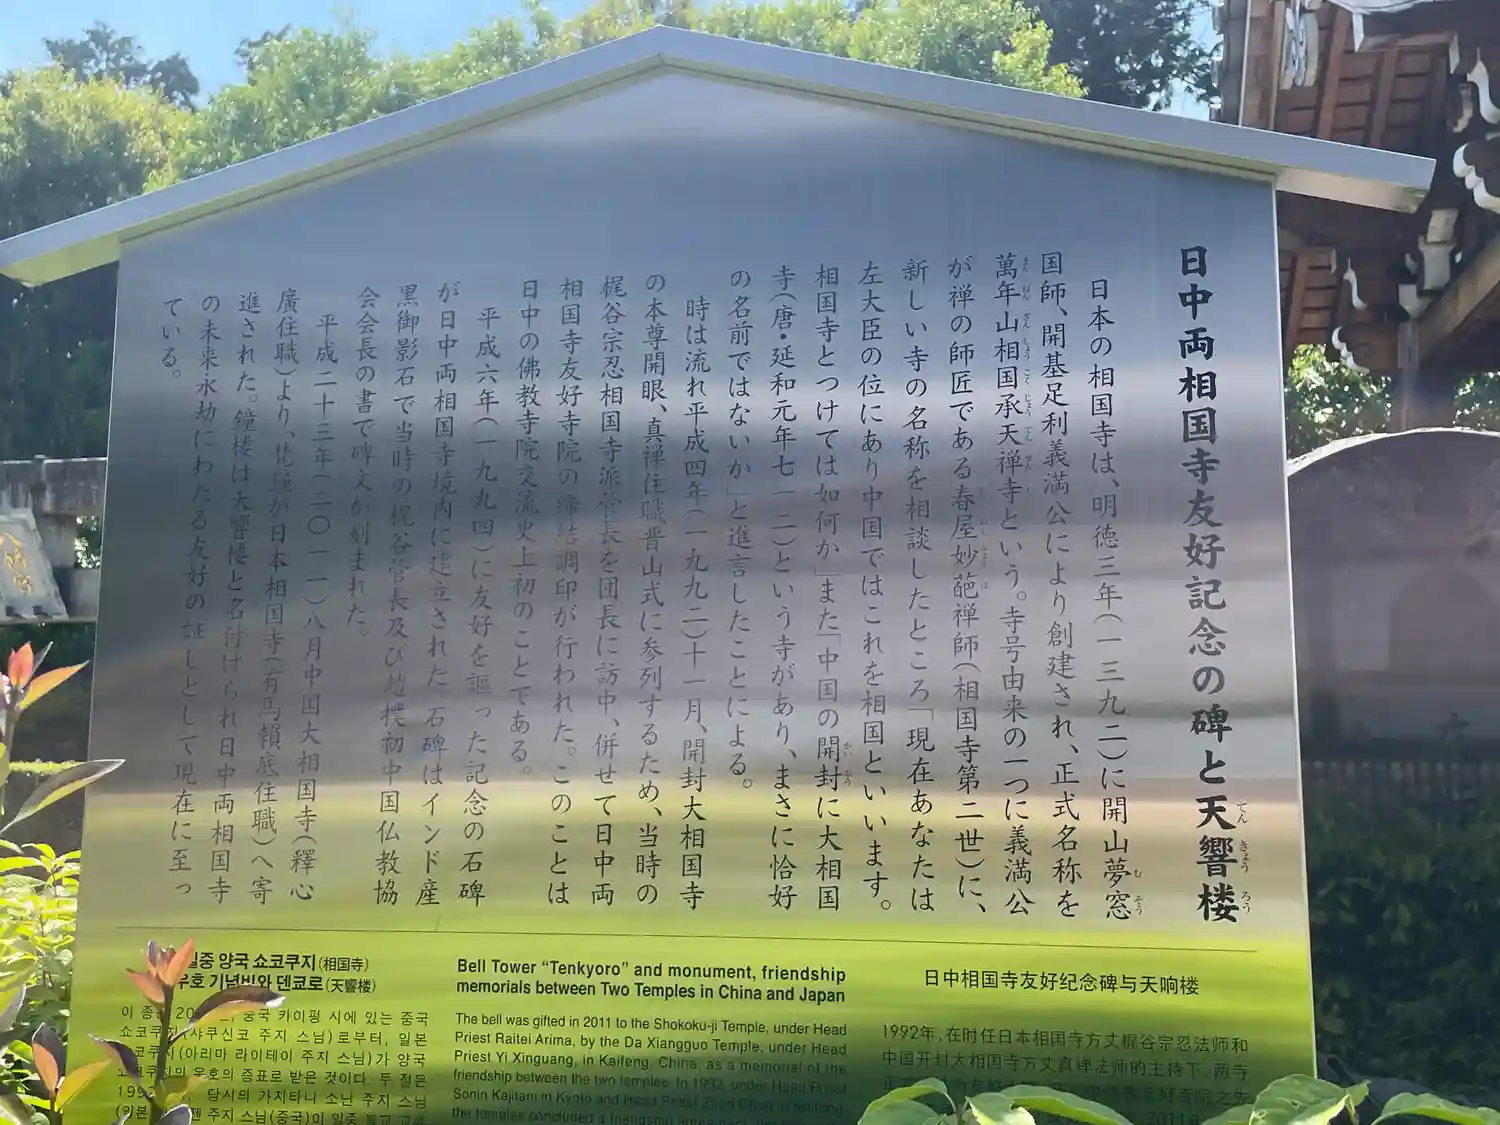 日中両相国寺友好記念の碑と天響楼
てんきょうろう
日本の相国寺は、明徳三年(一三九二)に開山夢窓
むそう
国師、開基足利義満公により創建され、正式名称を
萬年山相国承天禅寺という。寺号由来の一つに義満公
まんねんざんしょうこくじょうてんぜんじ
が禅の師匠である春屋妙葩禅師(相国寺第二世)に、
新しい寺の名称を相談したところ「現在あなたは
左大臣の位にあり中国ではこれを相国といいます。
相国寺とつけては如何か」また「中国の開封に大相国
かいふう
寺(唐・延和元年七一二)という寺があり、まさに恰好
の名前ではないか」と進言したことによる。
時は流れ平成四年(一九九二)十一月、開封大相国寺
の本尊開眼、真禅住職晋山式に参列するため、当時の
梶谷宗忍相国寺派管長を団長に訪中、併せて日中両
相国寺友好寺院の締結調印が行われた。このことは
日中の佛教寺院交流史上初のことである。
平成六年(一九九四)に友好を謳った記念の石碑
が日中両相国寺境内に建立された。石碑はインド産
黒御影石で当時の梶谷管長及び趙撲初中国仏教協
会会長の書で碑文が刻まれた。
平成二十三年(二〇一一)八月中国大相国寺(釋心
廣住職)より、梵鐘が日本相国寺(有馬頼底住職)へ寄
進された。鐘楼は天響楼と名付けられ日中両相国寺
の未来永劫にわたる友好の証しとして現在に至っ
ている。
일중 양국 쇼코쿠지(相国寺)
우호 기념비와 덴쿄로(天響楼)
이 종은 중국 카이펑 시에 있는 중국
쇼코쿠지(샤쿠신코 주지 스님)로부터, 일본
쇼코쿠지(아리마 라이테이 주지 스님)가 양국
우호의 증표로 받은 것이다. 두 절은
당시의 가지타니 소닌 주지 스님
주지 스님(중국)이 일중 불교
Bell Tower “Tenkyoro” and monument, friendship
memorials between Two Temples in China and Japan
The bell was gifted in 2011 to the Shokoku-ji Temple, under Head
Priest Raitei Arima, by the Da Xiangguo Temple, under Head
Priest Yi Xinguang, in Kaifeng, China, as a memorial of the
friendship between the two temples. In 1992, under Head Priest
Sonin Kajitani in Kyoto and Head Priest Zhen Chan in Kaifeng,
the temples concluded a friendship agreement,
日中相国寺友好纪念碑与天响楼
1992年,在时任日本相国寺方丈梶谷宗忍法师和
中国开封大相国寺方丈真禅法师的主持下,两寺